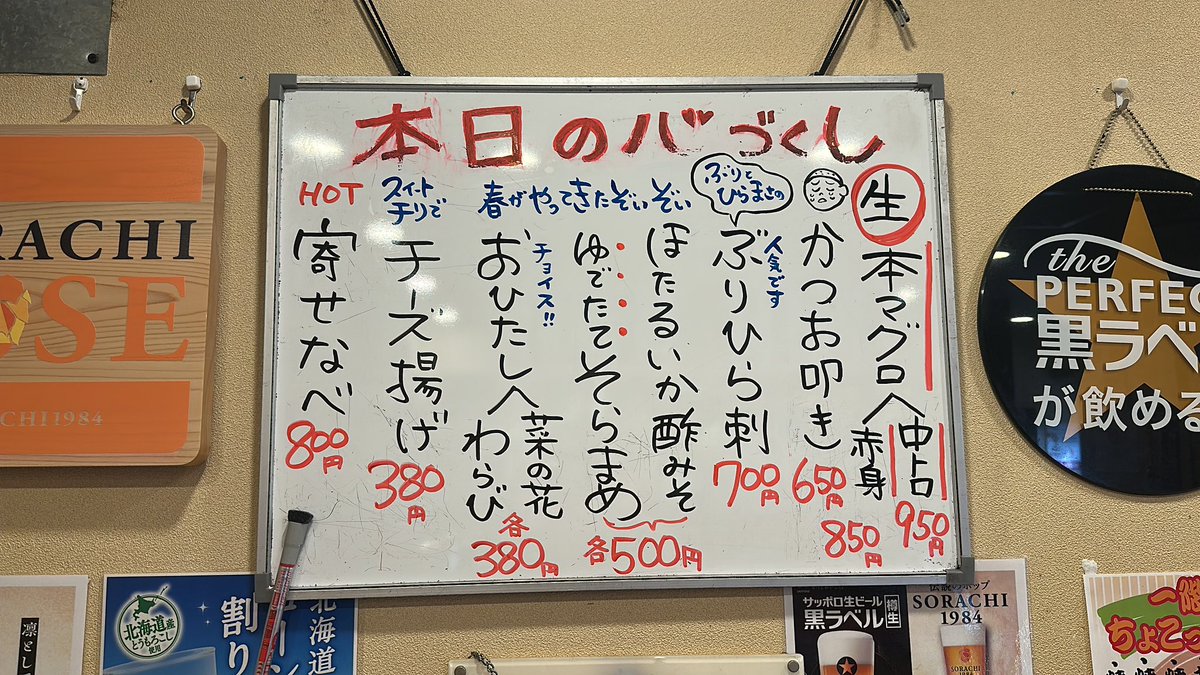 本日の心づくし
生
本マグロ
中トロ
950円
赤身
850円
かつお叩き
650円
ぶりと
ひらまさの
ぶりひら刺
人気です
700円
春がやってきたぞぃぞぃ
ほたるいか酢みそ
ゆでたてそらまめ
各500円
おひたし
チョイス!!
菜の花
わらび
各
380円
スイート
チリで
チーズ揚げ
380円
HOT
寄せなべ
800円
RACHI
CHI1984
the
PERFEC
黒ラベ
が飲める
凛とし
北海道産
とうもろこし
使用
北海道
割り
サッポロ生ビール
黒ラベル
樽生
伝説のホップ
SORACHI
1984
ちょこっ